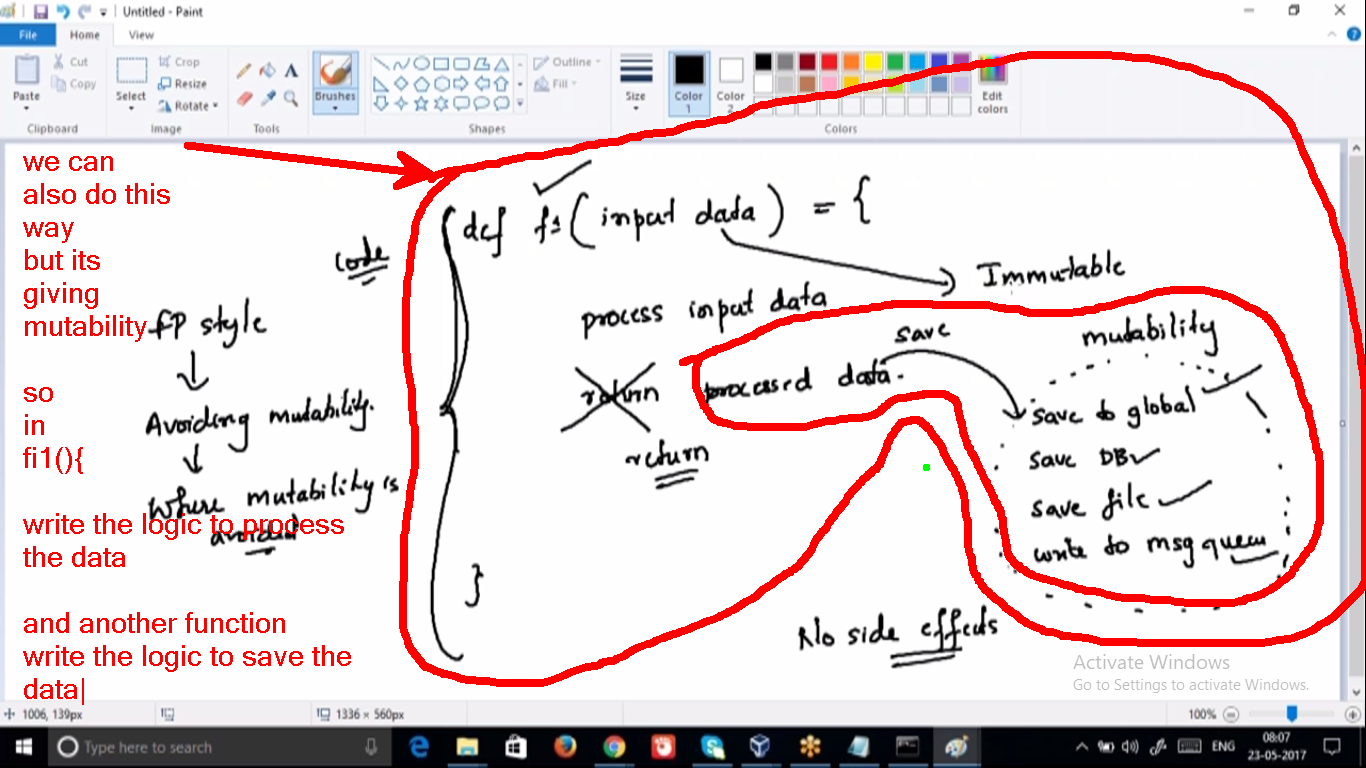 Untitled - Paint
File Home View
Paste Cut Copy
Clipboard
Select Crop Resize Rotate
Image
Tools
Brushes
Shapes
Outline
Fill
Size
Color 1
Color 2
Edit colors
Colors
we can
also do this
way
but its
giving
mutability
so
in
fi1(){
write the logic to process
the data
and another function
write the logic to save the
data
code
FP style
Avoiding mutability.
Where mutability is
avoided
def f1 (input data) = {
Immutable
process input data
save
mutability
return processed data.
return
save to global
save DB
save file
write to msg queue
}
No side effects
Activate Windows
Go to Settings to activate Windows.
1006, 139px
1336 × 560px
100%
Type here to search
ENG
08:07
23-05-2017